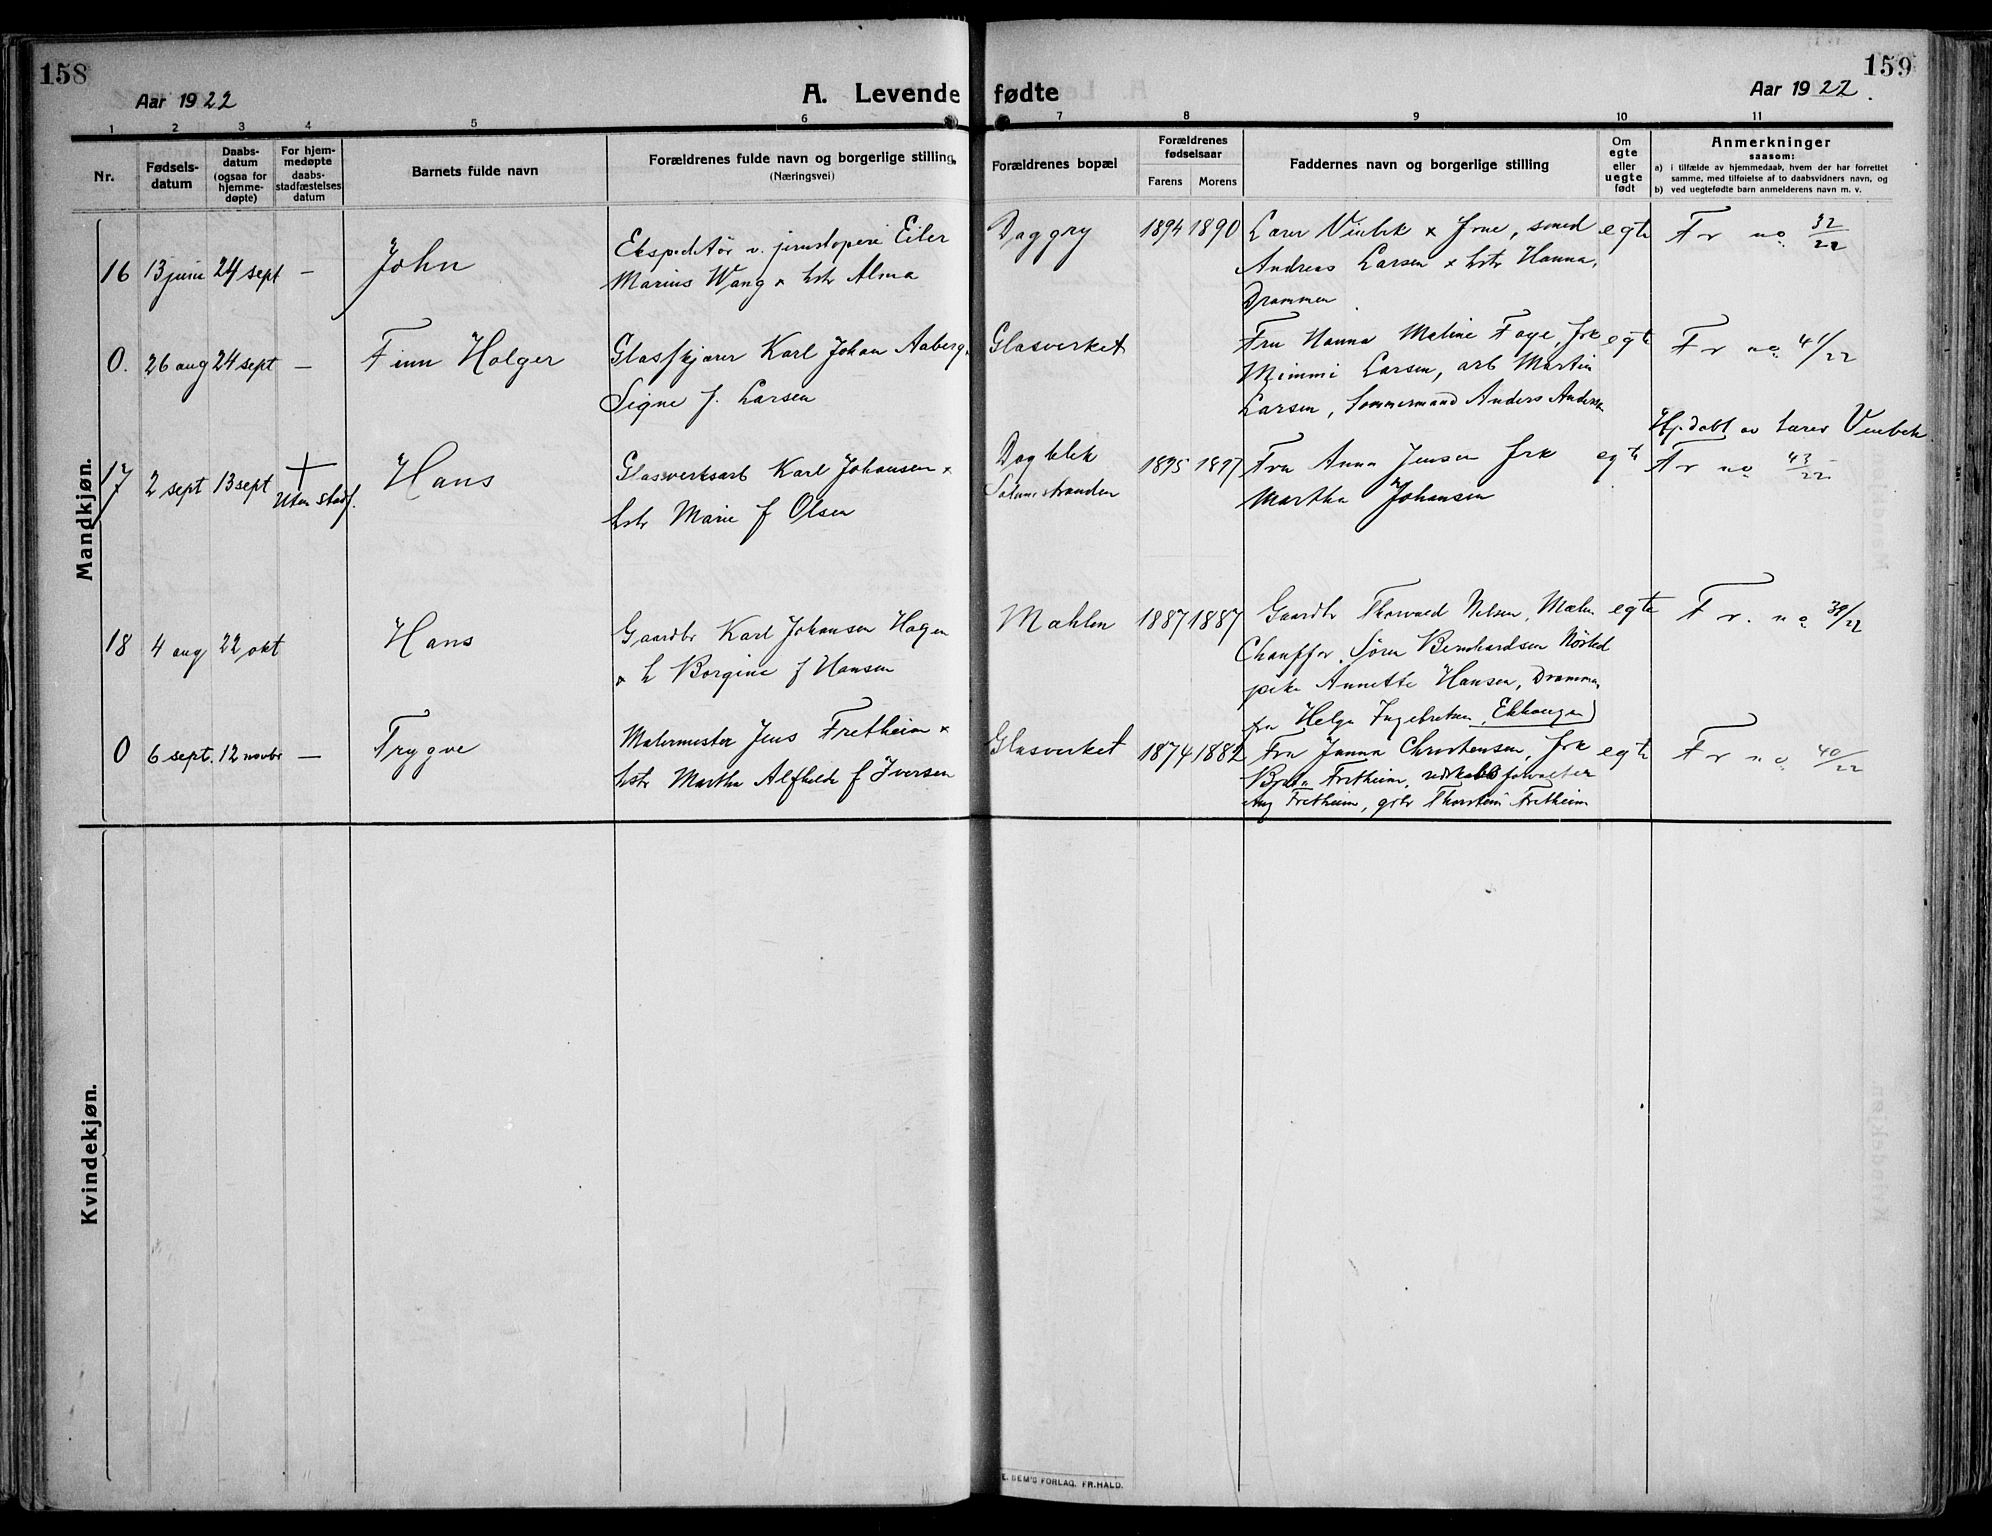 158
159
Aar 1922
A. Levende fødte
Aar 1922.
1 2 3 4 5 6 7 8 9 10 11
Nr.
Fødsels-
datum
Daabs-
datum
(ogsaa for
hjemme-
døpte)
For hjem-
medøpte
daabs-
stadfæstelses
datum
Barnets fulde navn
Forældrenes fulde navn og borgerlige stilling.
(Næringsvei)
Forældrenes bopæl
Forældrenes
fødselsaar
Farens Morens
Faddernes navn og borgerlige stilling
Om
egte
eller
uegte
født
Anmerkninger
saasom:
a) i tilfælde av hjemmedaab, hvem der har forrettet
samme, med tilføielse av to daabsvidners navn, og
b) ved uegtefødte barn anmelderens navn m. v.
Mandkjøn.
16 13 juni 24 sept —
John
Ekspeditør v. jernstøperi Eiler
Marius Wang x hstr Alma
Daggry
1894 1890
Lærer Vinbek x frue, smed
Andreas Larsen x hstr Hanna,
Drammen
egte
Fr no 32/22
0. 26 aug 24 sept —
Finn Holger
Glasskjærer Karl Johan Aaberg
Signe f. Larsen
Glasverket
Fru Hanna Maline Foge, frk
Mimmi Larsen, arb Martin
Larsen, tømmermand Anders Andersen
egte
Fr no 41/22
17 2 sept 13 sept + Uten stadf.
Hans
Glasverksarb Karl Johansen x
hstr Marie f Olsen
Dagblik
1895 1897
Fru Anna Jensen frk
Martha Johansen
egte
Hj.døbt av Lærer Vinbek
Fr no 43/22
18 4 aug 22 okt
Hans
Gaardbr Karl Johansen Hagen
x h Borgine f Hansen
Mæhlen
1887 1887
Gaardbr Thorvald Nilsen, Mælen
Chauffør Søren Bernhardsen
pike Annette Hansen, Drammen
fru Helga Ingebretsen, Ekhaugen
egte
Fr. no 39/22
0 6 sept. 12 novbr —
Trygve
Malermester Jens Fretheim x
hstr Martha Alfhild f Iversen
Glasverket
1874 1882
Fru Janna Christensen, frk
Fretheim, redskabsforvalter
Aug Fretheim, gbr Thorstein Fretheim
egte
Fr no 40/22
Kvindekjøn.
E. SEM'S FORLAG. FR.HALD.